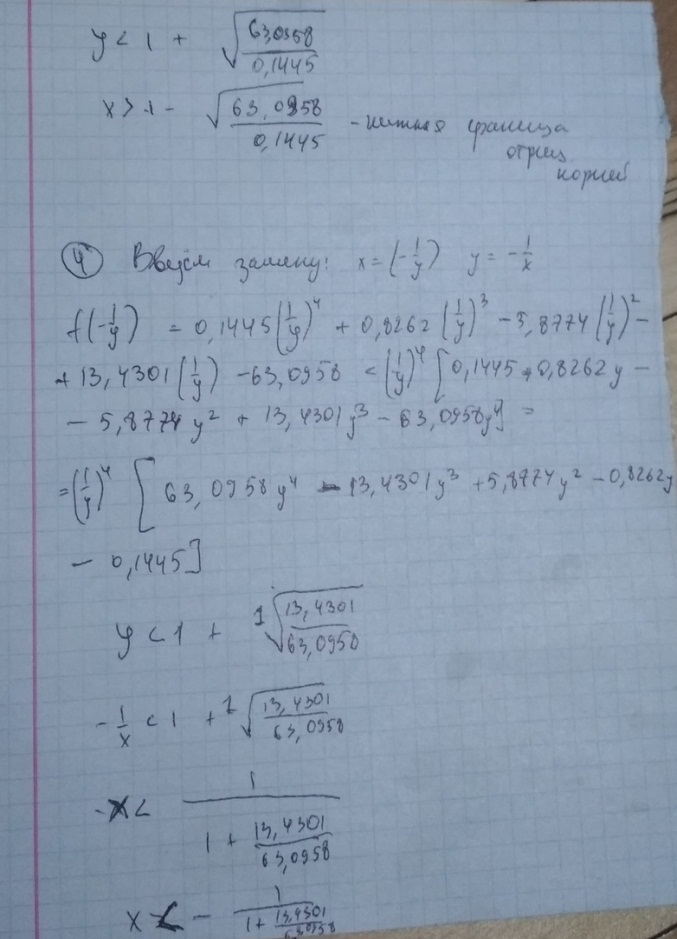 y < 1 + √(63,0958/0,1445)
x > 1 - √(63,0958/0,1445) - нижняя граница
отриц
корней
④ Введём замену: x = (-1/y) y = -1/x
f(-1/y) = 0,1445(1/y)⁴ + 0,8262(1/y)³ - 5,8774(1/y)² -
+ 13,4301(1/y) - 63,0958 = (1/y)⁴ [0,1445 + 0,8262y -
- 5,8774y² + 13,4301y³ - 63,0958y⁴] =
= (1/y)⁴ [63,0958y⁴ - 13,4301y³ + 5,8774y² - 0,8262y
- 0,1445]
y < 1 + ¹√(13,4301/63,0958)
-1/x < 1 + ¹√(13,4301/63,0958)
-x < 1/(1 + 13,4301/63,0958)
x < - 1/(1 + 13,4301/63,0958)